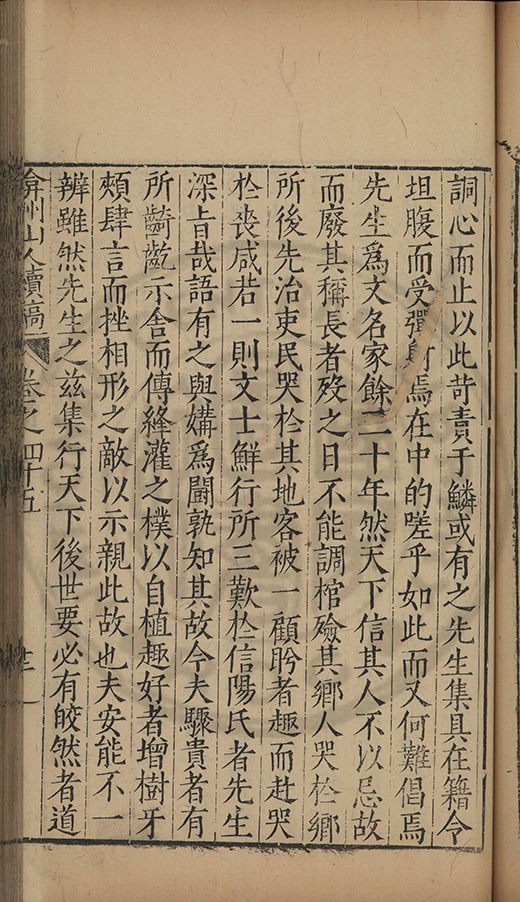 詞心而止以此苛責于鱗或有之先生集具在籍令
坦腹而受彈射焉在中的嗟乎如此而又何難倡焉
先生為文名家餘二十年然天下信其人不以忌故
而廢其稱長者歿之日不能調棺殮其鄉人哭於鄉
所後先治吏民哭於其地客被一顧盻者趣而赴哭
於喪咸若一則文士鮮行所三歎於信陽氏者先生
深旨哉語有之與媾為鬭孰知其故今夫驟貴者有
所齮齕示舍而傳縫灌之樸以自植趣好者增樹牙
頰肆言而挫相形之敵以示親此故也夫安能不一
辨雖然先生之茲集行天下後世要必有皎然者道
弇州山人續稿 卷之四十五 十三